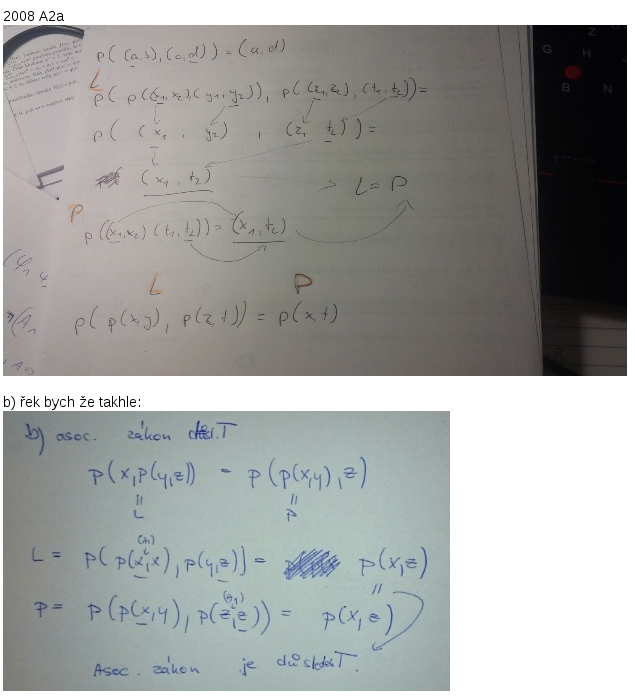 2008 A2a
p((a,b),(c,d)) = (a,d)
L
p( p((x1,x2),(y1,y2)), p((z1,z2),(t1,t2)) =
p( (x1, y2) , (z1 t2) ) =
(x1, t2) L = P
P
p((x1,x2) (t1,t2)) = (x1,t2)
L P
p( p(x,y), p(z,t)) = p(x,t)
b) řek bych že takhle:
b) asoc. zákon T
p(x,p(y,z)) = p(p(x,y),z)
= =
L P
(A1)
L = p( p(x,x), p(y,z)) = p(x,z)
=
(A1)
P = p(p(x,y), p(z,z)) = p(x,z)
Asoc. zákon je důsledek T.